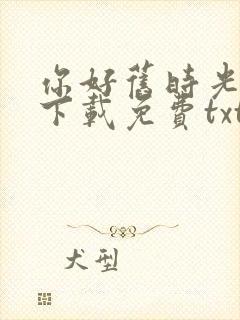 你好舊時光
下載免費txt
犬型